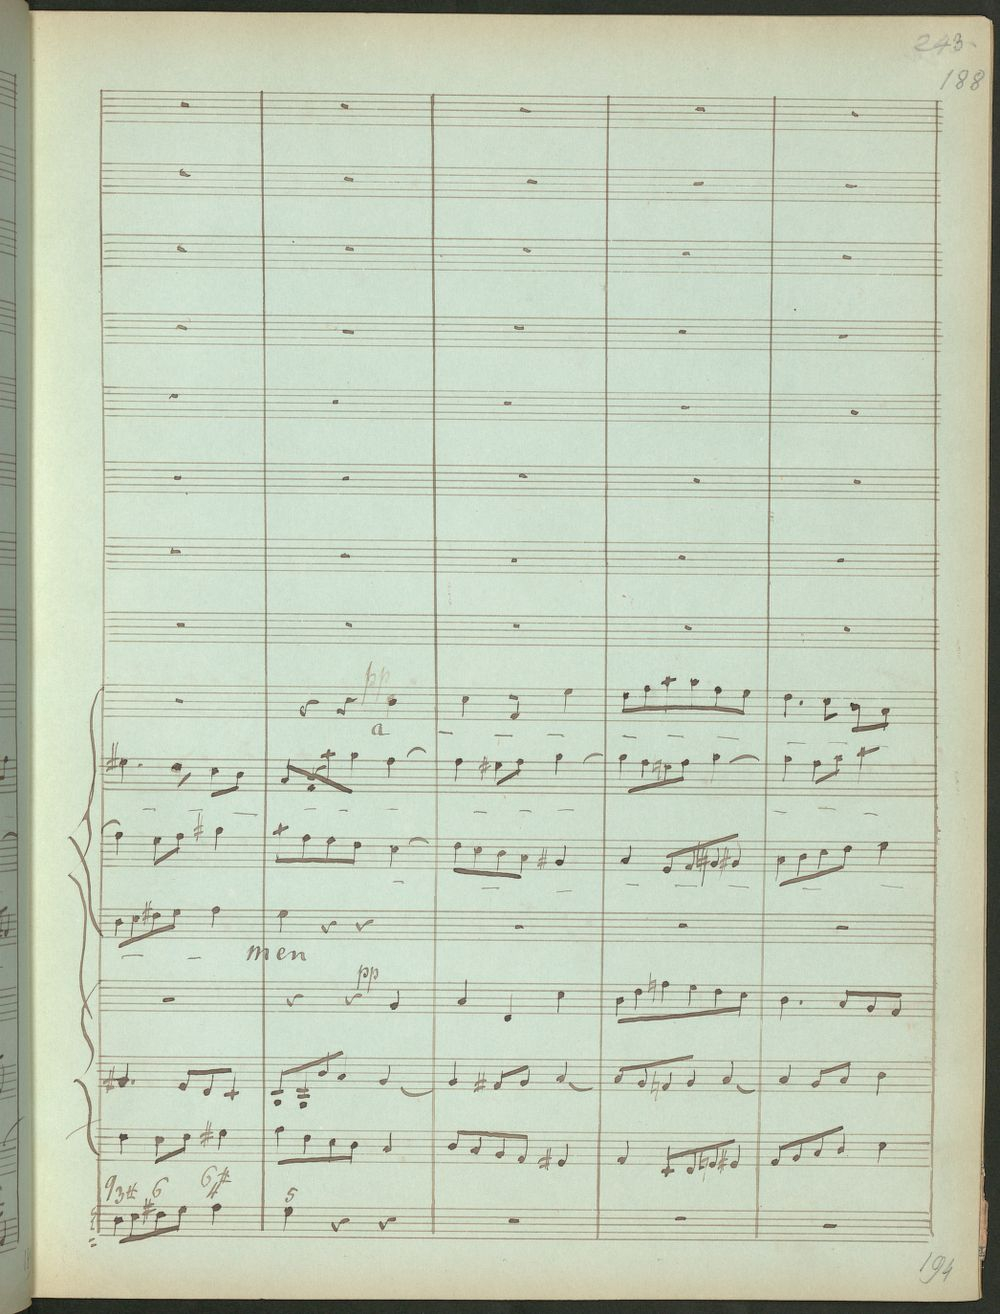 243
188
pp
a
men
pp
9 3# 6 6 4# 5
194